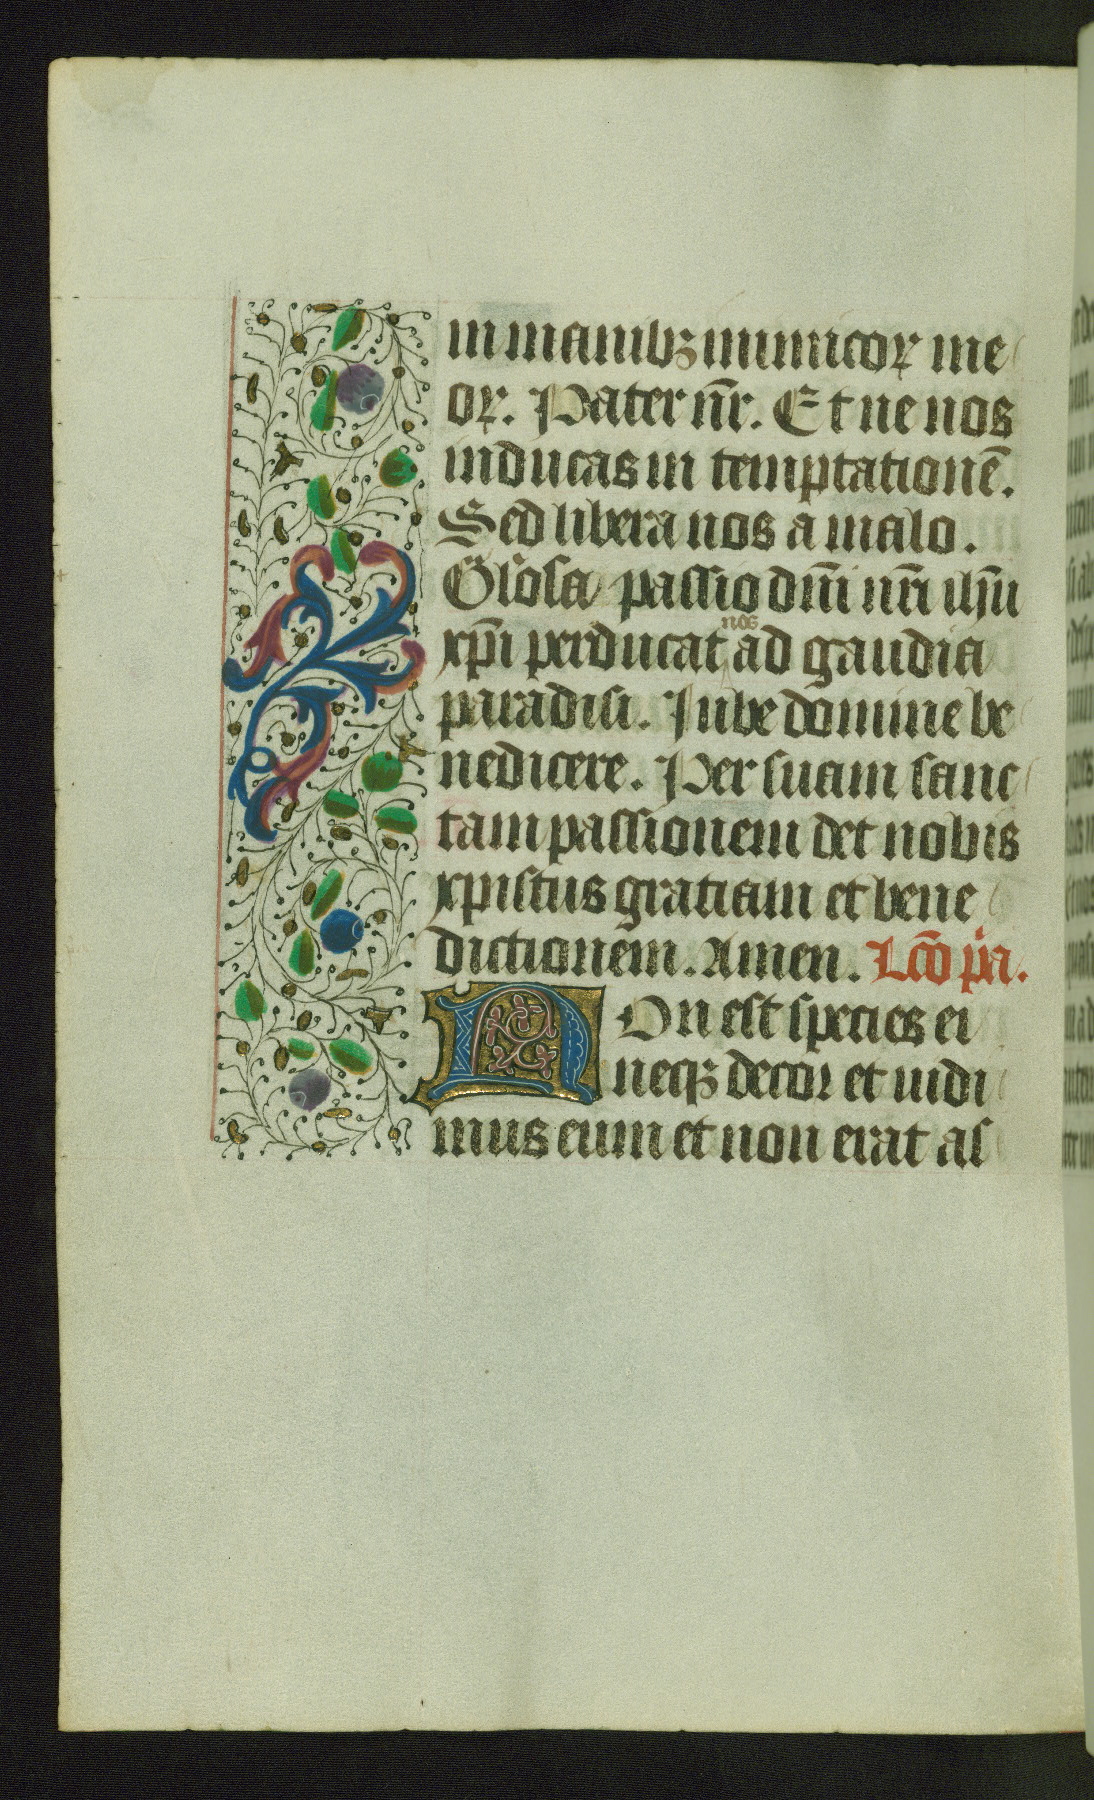 in manibꝫ inimicoꝝ me
oꝝ. Pater nr̄. Et ne nos
inducas in temptationē.
Sed libera nos a malo.
Gl'osa passio dn̄i nr̄i ihū
nos
xp̄i perducat ad gaudia
paradisi. Iube domine be
nedicere. Per suam sanc
tam passionem det nobis
xpistus gratiam et bene
dictionem. Amen. Lc̄o p'a.
Non est species ei
neqꝫ decor et uidi
mus eum et non erat as